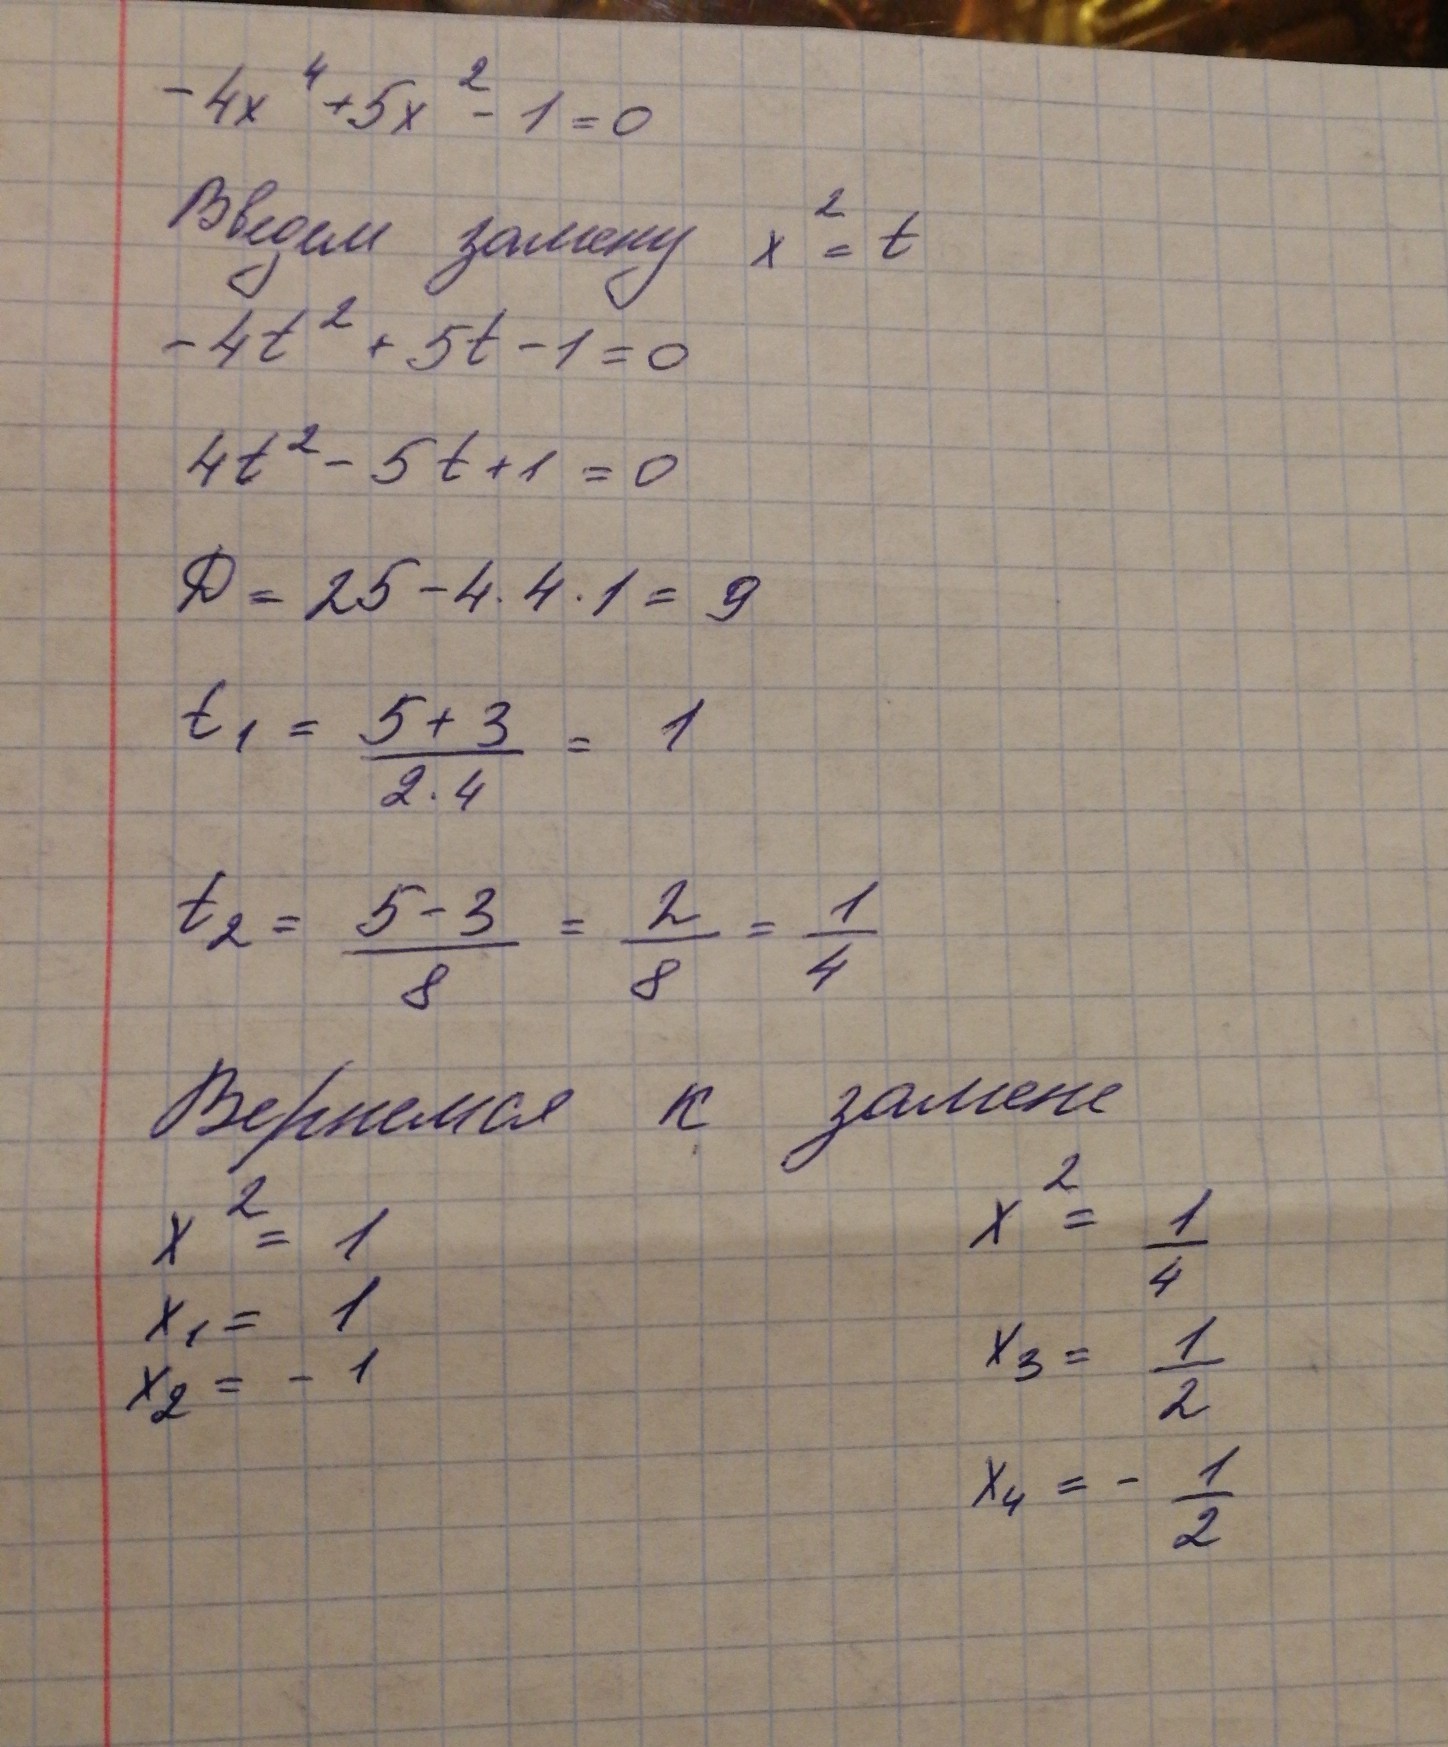 -4x⁴+5x²-1=0
Введем замену x²=t
-4t²+5t-1=0
4t²-5t+1=0
D=25-4·4·1=9
t₁=(5+3)/(2·4)=1
t₂=(5-3)/8=2/8=1/4
Вернемся к замене
x²=1
x₁=1
x₂=-1
x²=1/4
x₃=1/2
x₄=-1/2